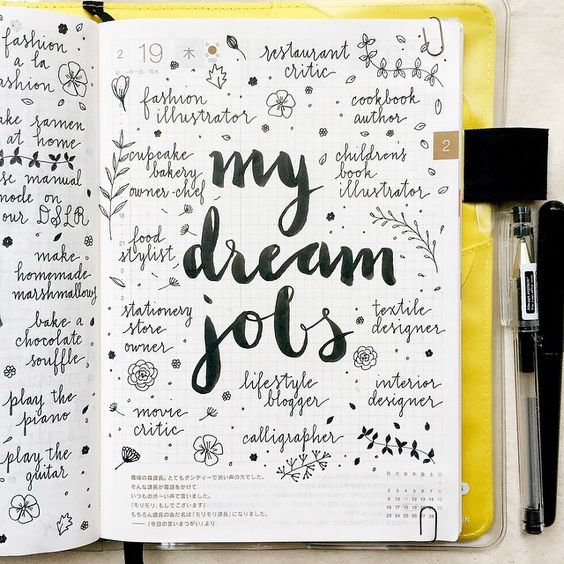 fashion
a la
fashion
ake ramen
at home
se manual
mode on
our DSLR
make
homemade
marshmallows
bake a
chocolate
souffle
play the
piano
play the
guitar
2 19 木
restaurant
critic
fashion
illustrator
cookbook
author
2
cupcake
bakery
owner-chef
my
childrens
book
illustrator
food
stylist
dream
stationery
store
owner
jobs
textile
designer
lifestyle
blogger
interior
designer
movie
critic
calligrapher
職場の森課長。とてもダンディーで渋い声の方でした。
そんな課長が電話をかけて
いつもの渋ーい声で言いました。
「モリモリ、もしでございます」
もちろん課長のあだ名は「モリモリ課長」になりました。
——『今日の言いまつがい』より
月 火 水 木 金 土 日
1
2 3 4 5 6 7 8
9 10 11 12 13 14 15
16 17 18 19 20 21 22
23 24 25 26 27 28